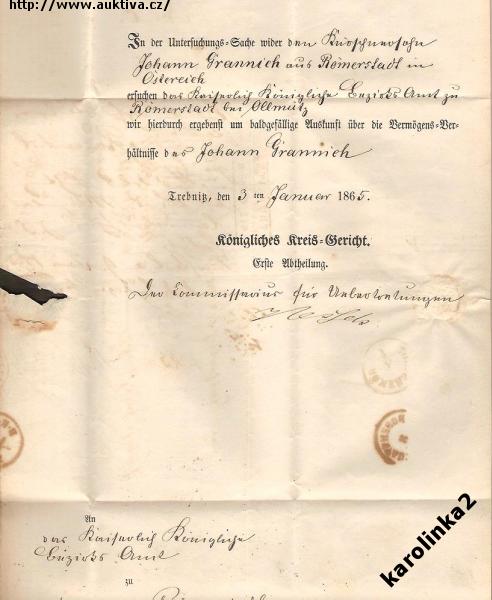 http://www.auktiva.cz/
In der Untersuchungs-Sache wider den Kürschnersohn
Johann Grannich aus Römerstadt in
Österreich
ersuchen das Kaiserlich Königliche Bezirks Amt zu
Römerstadt bei Ollmütz
wir hierdurch ergebenst um baldgefällige Auskunft über die Vermögens-Ver-
hältnisse des Johann Grannich
Trebnitz, den 3 ten Januar 1865.
Königliches Kreis-Gericht.
Erste Abtheilung.
Der Commissarius für Uebertretungen
An
das Kaiserlich Königliche
Bezirks Amt
zu
karolinka2